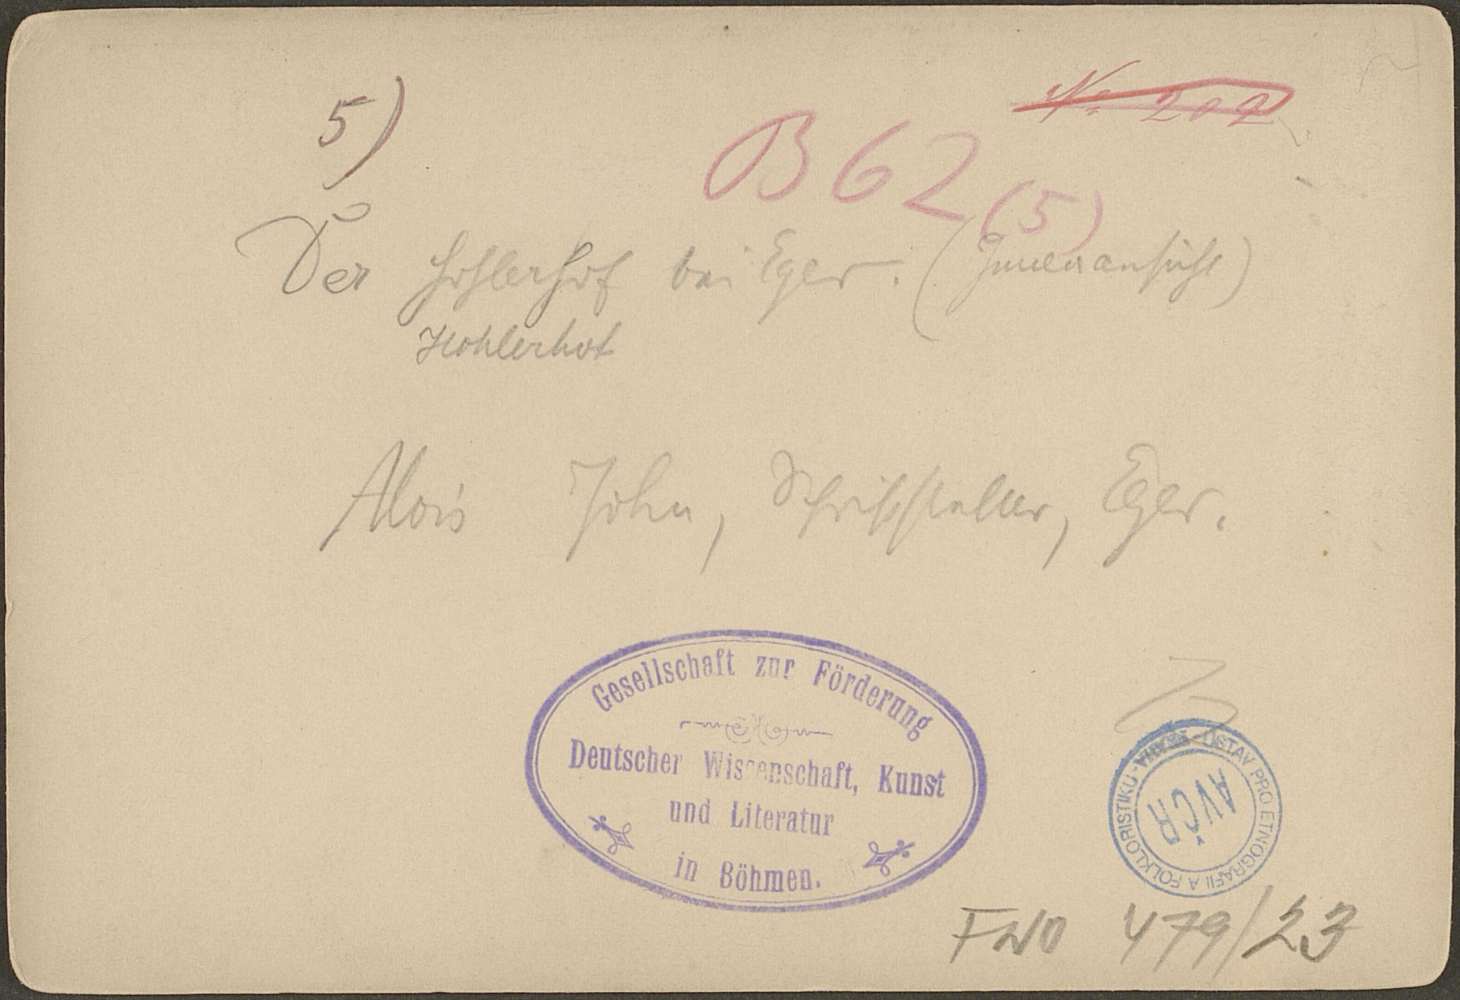 5)
No 202
B 62 (5)
Der Hohlerhof bei Eger. (Innenansicht)
Hohlerhof
Alois John, Schriftsteller, Eger.
Gesellschaft zur Förderung
Deutscher Wissenschaft, Kunst
und Literatur
in Böhmen.
ÚSTAV PRO ETNOGRAFII A FOLKLORISTIKU - PRAHA -
AVČR
FNO 479/23